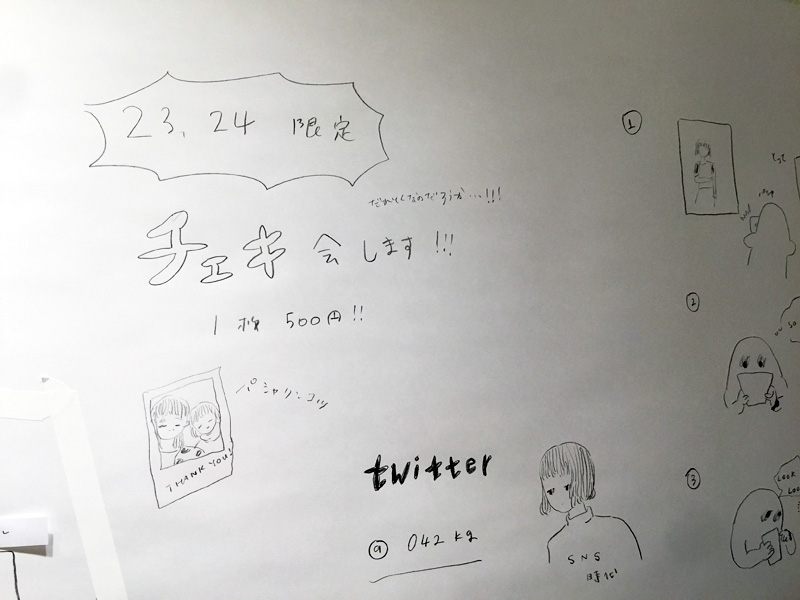 23, 24 限定
だれとくなのだろうか…!!!
チェキ会します!!!
1枚 500円!!
パシャリンコッ
THANK YOU!
twitter
@042kg
SNS
時代
①
とって
②
③
LOOK